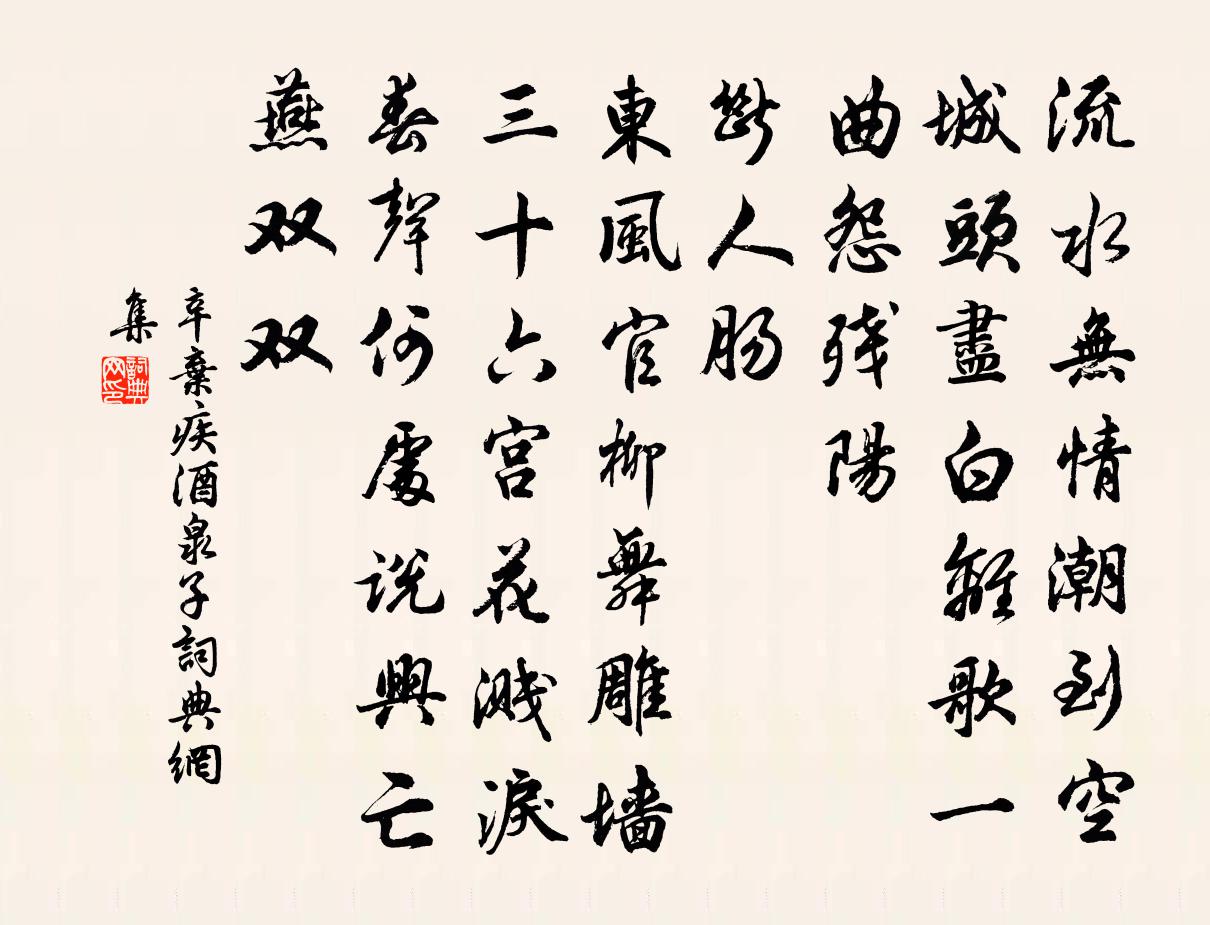 流水無情潮到空
城頭盡白離歌一
曲怨殘陽
斷人肠
東風官柳舞雕墻
三十六宫花濺淚
春聲何處説興亡
燕双双
辛棄疾酒泉子詞典網
集
詞典网印